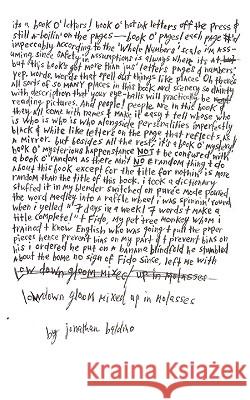 its a book o' letters! book o' hot ink letters off the press &
still a-boilin' on the pages — book o' pages! each page #'d
impeccably according to the 'Whole Numbers' scale i'm ass-
uming since safety in assumptions is always where its at
but this book's got more than jus' letters pages & numbers'
yep. words, words that spell out things like places. Oh there's
all sorts of so many places in this book and scenery so dainty
with description that your eye-balls will practically be
reading pictures. And people! people are in this book &
they all come with names & make it easy t' tell whose who
is who is who alongside personalities imperfectly
black & white like letters on the page that reflects as
a mirror. but besides all the rest it's a book o' mystery!
book o' mysterious happenstance NOT to be confused with
a book o' random as there aint NO random thing t' do
about this book except for the title for nothin' is more
random than the title of this book. i took a dictionary
stuffed it in my blender switched on pureé mode poured
the word medley into a raffle wheel i was spinnin' round
when i yelled "7 days in a week! 7 words t' make a
title complete!" t' Fido, my pet tree monkey whom i
trained t' know English who was going t' pull the paper
pieces hence prevent bias on my part & t' prevent bias on
his i ordered he put on a banana blindfold he stumbled
about the home no sign of Fido since, left me with
low down gloom mixed up in molasses
lowdown gloom mixed up in molasses
by jonathan baldino